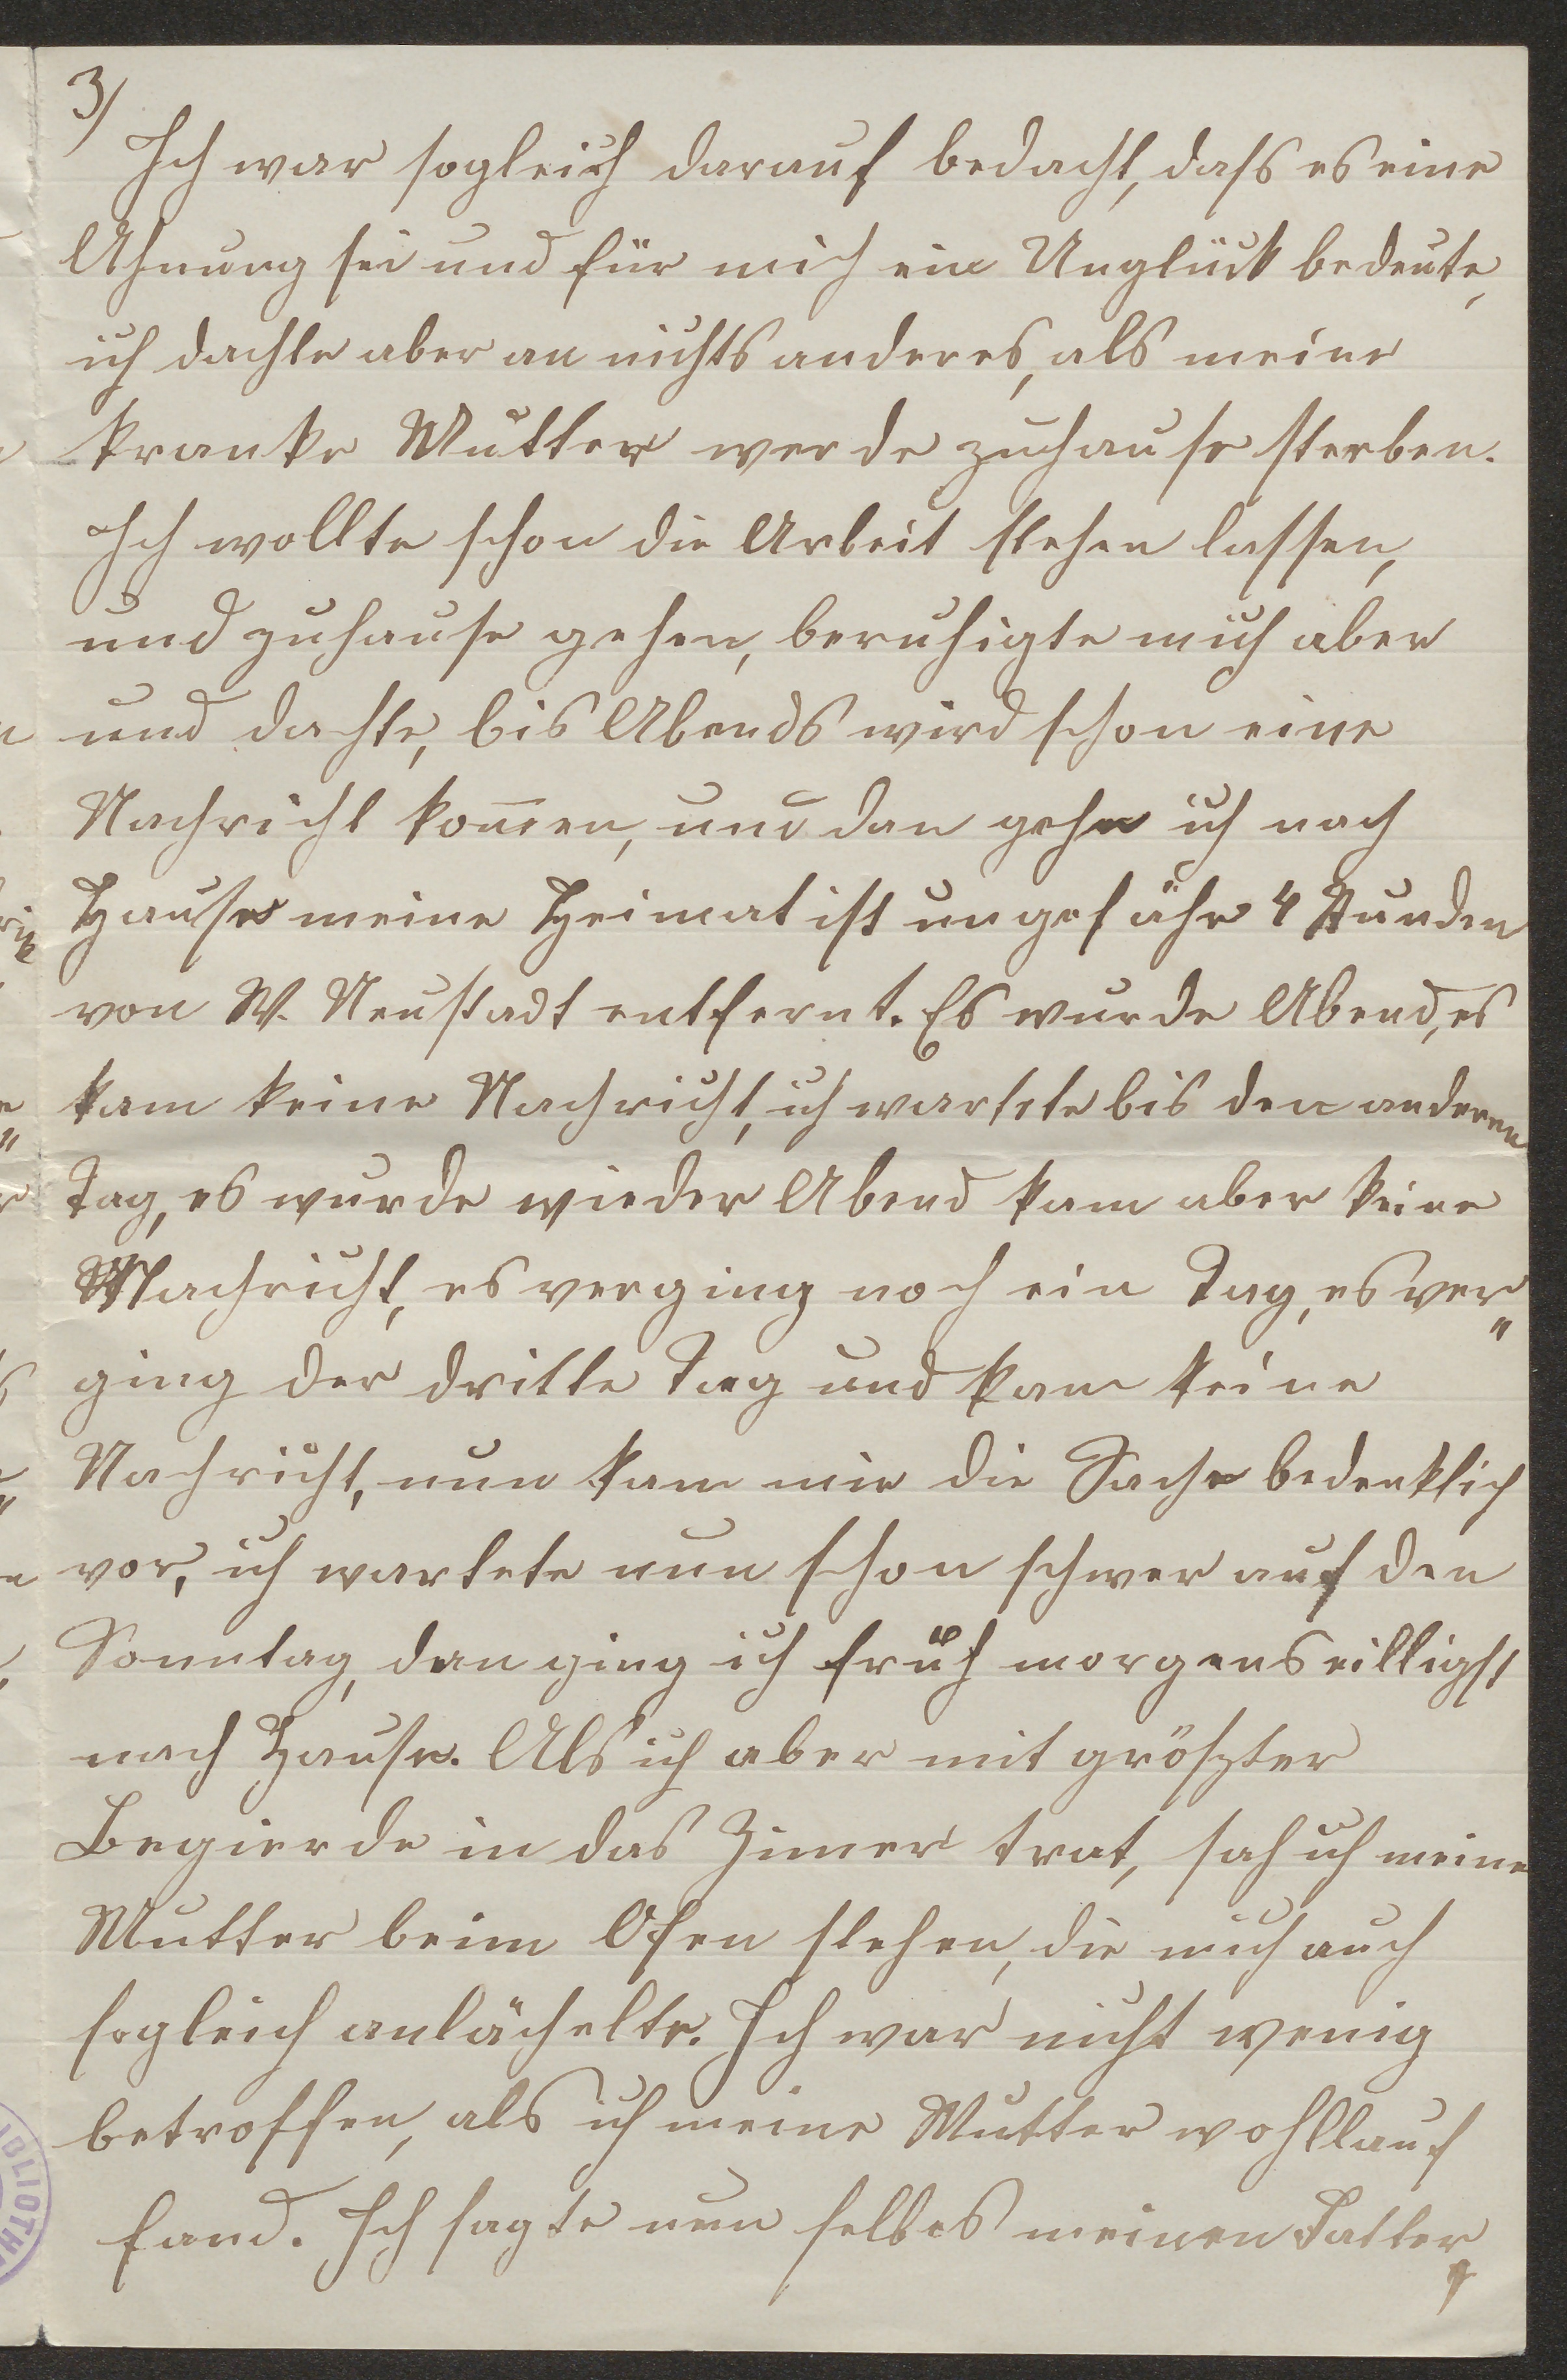 3/
Ich war sogleich darauf bedacht, dass es eine
Ahnung sei und für mich ein Unglück bedeute,
ich dachte aber an nichts anderes, als meine
kranke Mutter werde zuhause sterben.
Ich wollte schon die Arbeit stehen lassen,
und zuhause gehen, beruhigte mich aber
und dachte, bis Abends wird schon eine
Nachricht kom̄en, und dan gehe ich nach
Hause meine Heimat ist ungefähr 4 Stunden
von W. Neustadt entfernt. Es wurde Abend, es
kam keine Nachricht, ich wartete bis den anderen
Tag, es wurde wieder Abend kam aber keine
Nachricht, es verging noch ein Tag, es ver„
ging der dritte Tag und kam keine
Nachricht, nun kam mir die Sache bedenklich
vor, ich wartete nun schon schwer auf den
Sonntag, dan ging ich früh morgens eilligst
nach Hause. Als ich aber mit gröszter
Begierde in das Zimer trat, sah ich meine
Mutter beim Ofen stehen, die mich auch
sogleich anlächelte. Ich war nicht wenig
betroffen, als ich meine Mutter wohllauf
fand. Ich sagte nun selbes meinen Vatter,